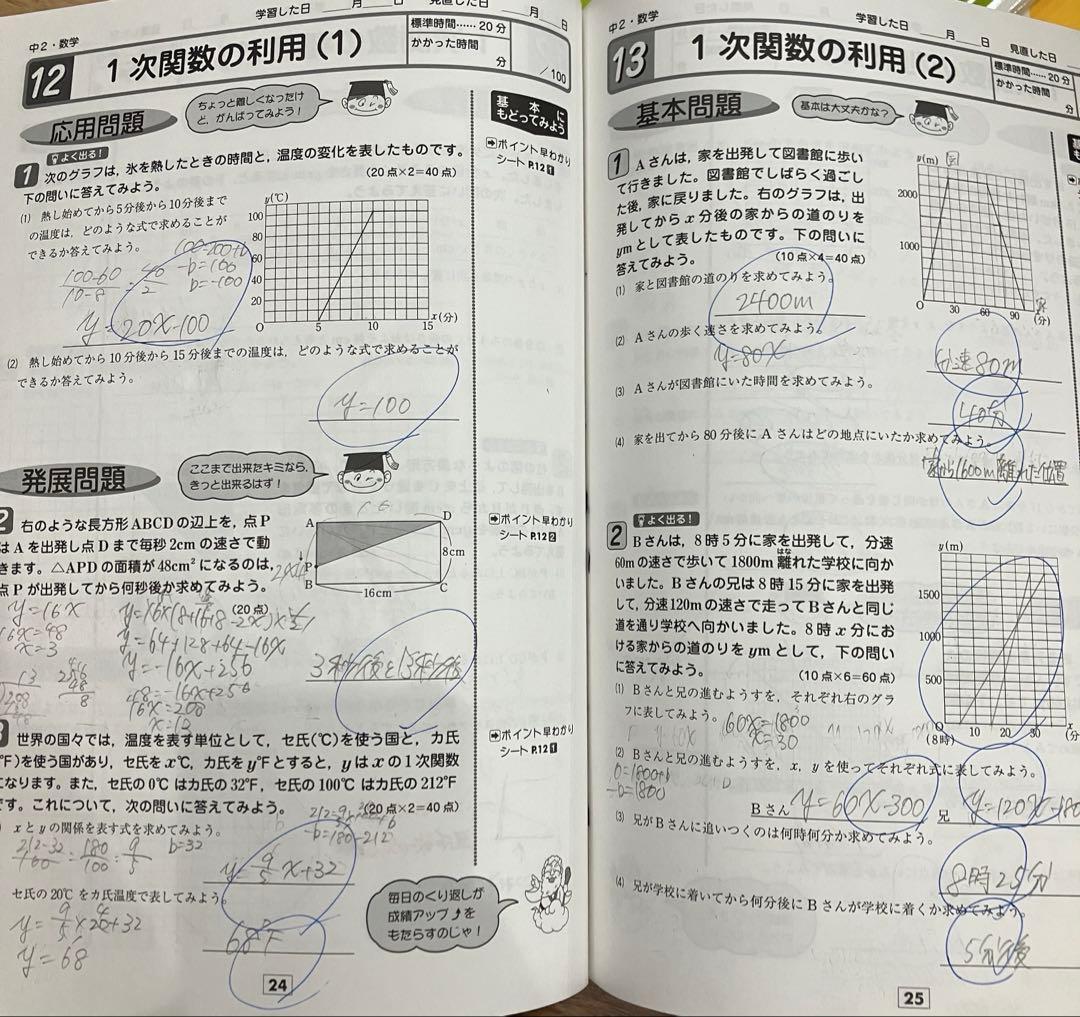 中2・数学
学習した日　月　日　見直した日　月　日
12　1次関数の利用(1)
標準時間……20分
かかった時間
分
/100
応用問題
ちょっと難しくなったけ
ど，がんばってみよう！
基本に
もどってみよう
1　よく出る！
次のグラフは，氷を熱したときの時間と，温度の変化を表したものです。
下の問いに答えてみよう。　(20点×2=40点)
➡ポイント早わかり
シートP.12 1
(1) 熱し始めてから5分後から10分後まで
の温度は，どのような式で求めることが
できるか答えてみよう。
100=200+b
-b=100
b=-100
100-60/10-8=40/2
y=20x-100
y(℃)
100
80
60
40
20
O　5　10　15　x(分)
(2) 熱し始めてから10分後から15分後までの温度は，どのような式で求めることが
できるか答えてみよう。
y=100
発展問題
ここまで出来たキミなら，
きっと出来るはず！
2　右のような長方形ABCDの辺上を，点P
はAを出発し点Dまで毎秒2cmの速さで動
きます。△APDの面積が48cm²になるのは，
点Pが出発してから何秒後か求めてみよう。
(20点)
A　D
8cm
P
B　C
16cm
➡ポイント早わかり
シートP.12 2
y=16x
16x=48
x=3
y=64+128+64-16x
y=-16x+256
48=-16x+256
16x=208
x=13
3秒後と13秒後
3　世界の国々では，温度を表す単位として，セ氏(℃)を使う国と，カ氏
(°F)を使う国があり，セ氏をx℃，カ氏をy°Fとすると，yはxの1次関数
になります。また，セ氏の0℃はカ氏の32°F，セ氏の100℃はカ氏の212°F
です。これについて，次の問いに答えてみよう。　(20点×2=40点)
➡ポイント早わかり
シートP.12 1
xとyの関係を表す式を求めてみよう。
212-32/100=180/100=9/5
-b=180-212
b=32
y=9/5x+32
セ氏の20℃をカ氏温度で表してみよう。
y=9/5×20+32
y=68
68°F
毎日のくり返しが
成績アップを
もたらすのじゃ！
24
中2・数学
学習した日　月　日　見直した日
13　1次関数の利用(2)
標準時間……20分
かかった時間
分
基本問題
基本は大丈夫かな？
1　Aさんは，家を出発して図書館に歩い
て行きました。図書館でしばらく過ごし
た後，家に戻りました。右のグラフは，出
発してからx分後の家からの道のりを
ymとして表したものです。下の問いに
答えてみよう。　(10点×4=40点)
y(m)
図
2000
1000
O　30　60　90　x(分)
家
(1) 家と図書館の道のりを求めてみよう。
2400m
(2) Aさんの歩く速さを求めてみよう。
y=80x
分速80m
(3) Aさんが図書館にいた時間を求めてみよう。
40分
(4) 家を出てから80分後にAさんはどの地点にいたか求めてみよう。
家から1600m離れた位置
2　よく出る！
Bさんは，8時5分に家を出発して，分速
60mの速さで歩いて1800m離れた学校に向か
はな
いました。Bさんの兄は8時15分に家を出発
して，分速120mの速さで走ってBさんと同じ
道を通り学校へ向かいました。8時x分にお
ける家からの道のりをymとして，下の問い
に答えてみよう。　(10点×6=60点)
y(m)
1500
1000
500
O　10　20　30　x(分)
(8時)
(1) Bさんと兄の進むようすを，それぞれ右のグラ
フに表してみよう。
60x=1800
x=30
(2) Bさんと兄の進むようすを，x，yを使ってそれぞれ式に表してみよう。
0=1800+b
-b=1800
Bさん　y=60x-300　兄　y=120x-180
(3) 兄がBさんに追いつくのは何時何分か求めてみよう。
8時25分
(4) 兄が学校に着いてから何分後にBさんが学校に着くか求めてみよう。
5分後
25